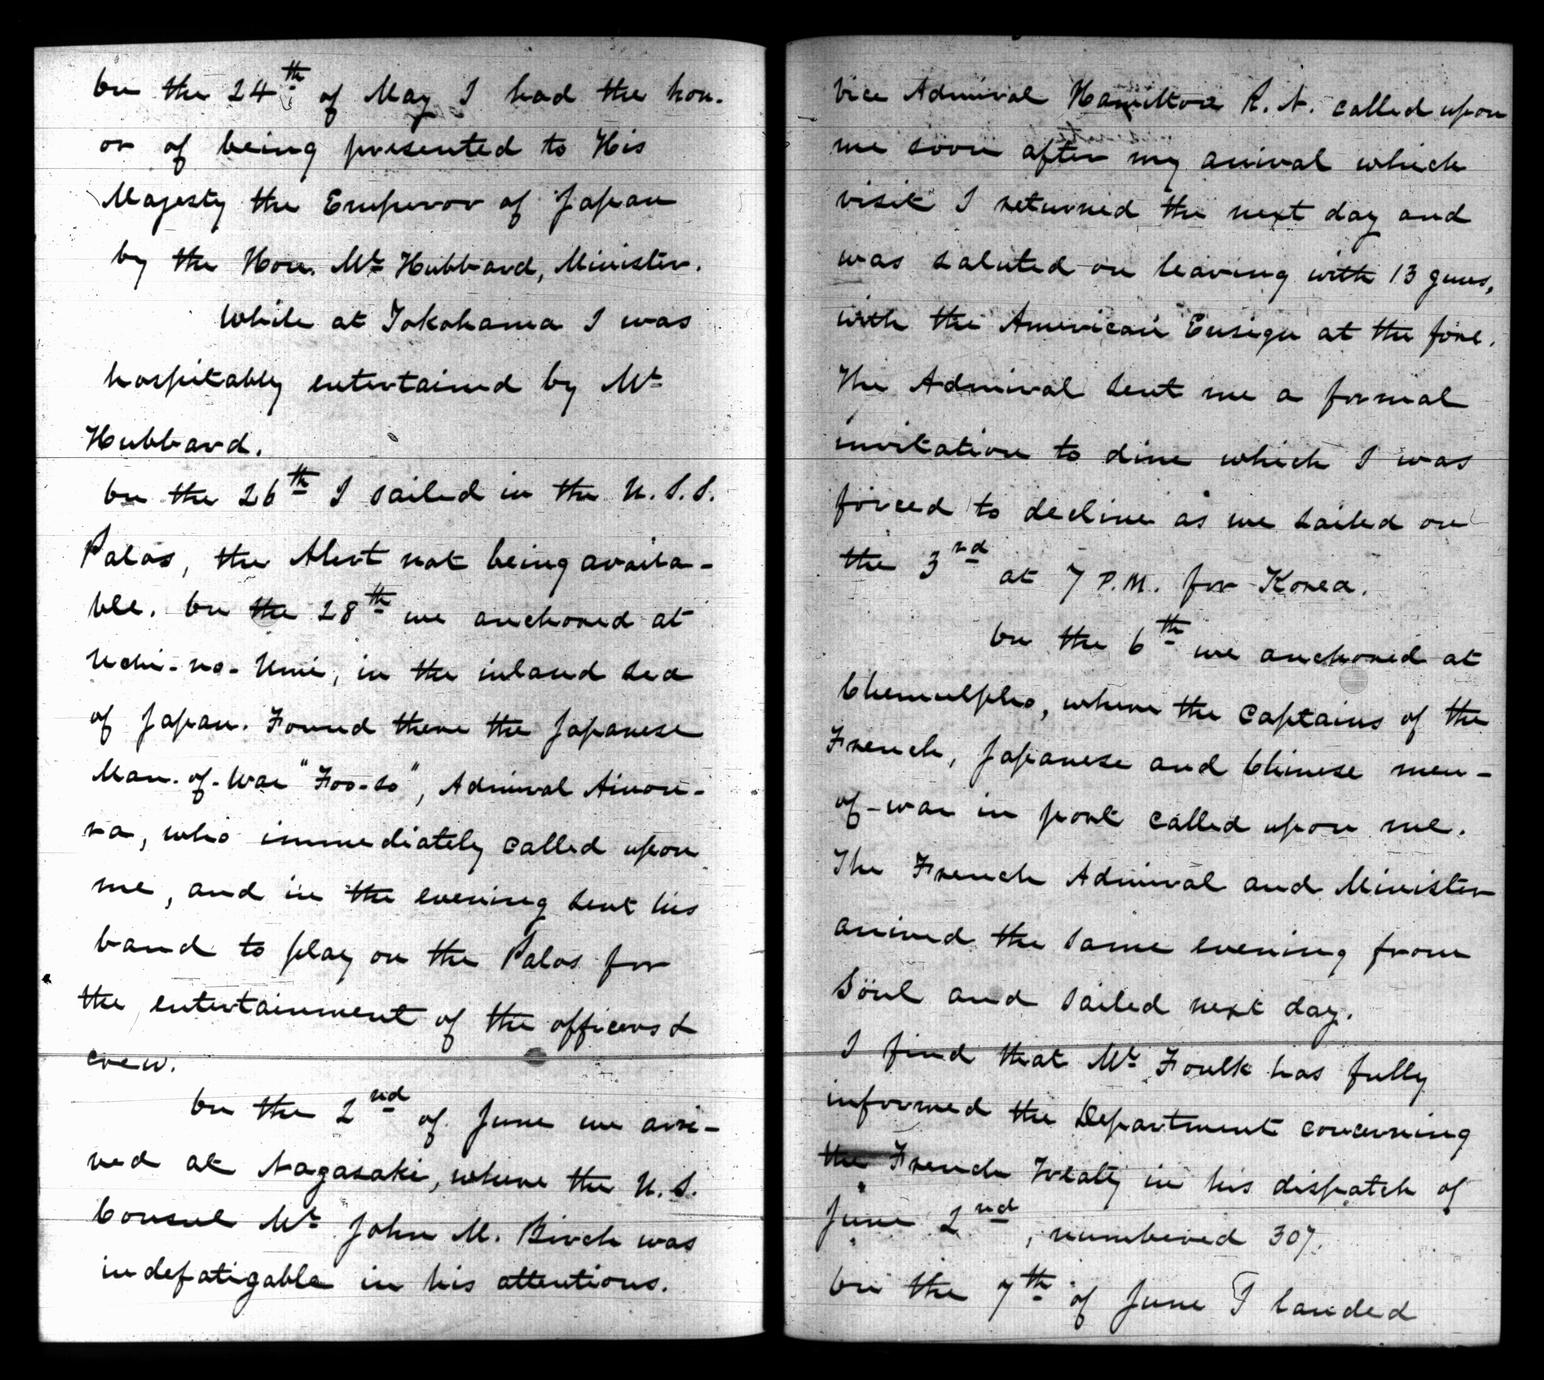 On the 24th of May I had the hon-
or of being presented to His
Majesty the Emperor of Japan
by the Hon. Mr Hubbard, Minister.
While at Yokohama I was
hospitably entertained by Mr
Hubbard.
On the 26th I sailed in the U.S.S.
Palos, the Alert not being availa-
ble. On the 28th we anchored at
Uchi-no-Umi, in the inland sea
of Japan. Found there the Japanese
Man-of-War "Foo-so", Admiral
, who immediately called upon
me, and in the evening sent his
band to play on the Palos for
the entertainment of the officers &
crew.
On the 2nd of June we arri-
ved at Nagasaki, where the U.S.
Consul Mr John M. Birch was
indefatigable in his attentions.
Vice Admiral Hamilton R.N. called upon
me soon after my arrival which
visit I returned the next day and
was saluted on leaving with 13 guns,
with the American Ensign at the fore.
The Admiral sent me a formal
invitation to dine which I was
forced to decline as we sailed on
the 3rd at 7 P.M. for Korea.
On the 6th we anchored at
Chemulpho, where the captains of the
French, Japanese and Chinese men-
of-war in port called upon me.
The French Admiral and Minister
arrived the same evening from
Söul and sailed next day.
I find that Mr Foulk has fully
informed the Department concerning
the French Treaty in his dispatch of
June 2nd, numbered 307.
On the 7th of June I landed